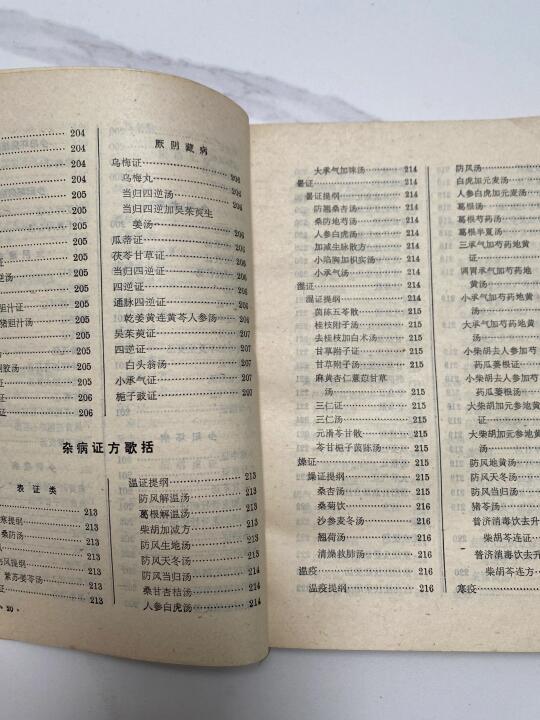 204
204
204
205
205
逆汤 205
205
205
胆汁证
猪胆汁汤 205
205
205
阿胶汤 205
证 206
证 206
厥阴藏病
乌梅证 206
乌梅丸 206
当归四逆汤 206
当归四逆加吴茱萸生
姜汤 206
瓜蒂证 206
茯苓甘草证 206
当归四逆证 206
四逆证 206
通脉四逆证 206
乾姜黄连黄芩人参汤 206
吴茱萸证 207
四逆证 207
白头翁汤 207
小承气证 207
栀子豉证 207
杂病证方歌括
表证类
寒提纲 213
桑防汤 213
213
风提纲 213
紫苏姜苓汤 213
证 213
• 20 •
温证提纲 213
防风解温汤 213
葛根解温汤 213
柴胡加减方 213
防风生地汤 213
防风天冬汤 213
防风当归汤 214
桑甘杏桔汤 214
人参白虎汤 214
大承气加味汤 214
暑证 214
暑证提纲 214
防翘桑杏汤 214
桑防地芍汤 214
人参白虎汤 214
加减生脉散方 214
小陷胸加枳实汤 214
小承气汤 214
湿证 214
湿证提纲 214
茵陈五苓散 214
桂枝附子汤 214
去桂枝加白术汤 214
甘草附子证 215
甘草附子汤 215
麻黄杏仁薏苡甘草
汤 215
三仁证 215
三仁汤 215
元滑苓甘散 215
苓甘栀子茵陈汤 215
燥证 215
燥证提纲 215
桑杏汤 215
桑菊饮 216
沙参麦冬汤 216
翘荷汤 216
清燥救肺汤 216
温疫 216
温疫提纲 216
防风汤
白虎加元麦汤
人参白虎加元麦汤
葛根汤
葛根芍药汤
葛根半夏汤
三承气加芍药地黄
证
调胃承气加芍药地
黄汤
小承气加芍药地黄
汤
大承气加芍药地黄
汤
小柴胡去人参加芍
药瓜蒌根证
小柴胡去人参加芍
药瓜蒌根汤
大柴胡加元参地黄
证
大柴胡加元参地黄
汤
防风地黄汤
防风天冬汤
防风当归汤
猪苓汤
普济消毒饮去升
柴胡芩连证
普济消毒饮去升
柴胡芩连方
寒疫